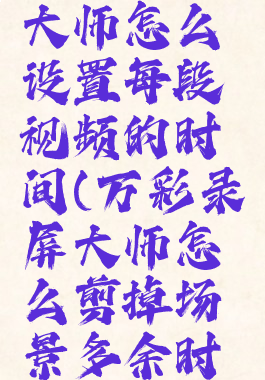 大师怎么
设置每段
视频的时
间(万彩录
屏大师怎
么剪掉场
景多余时